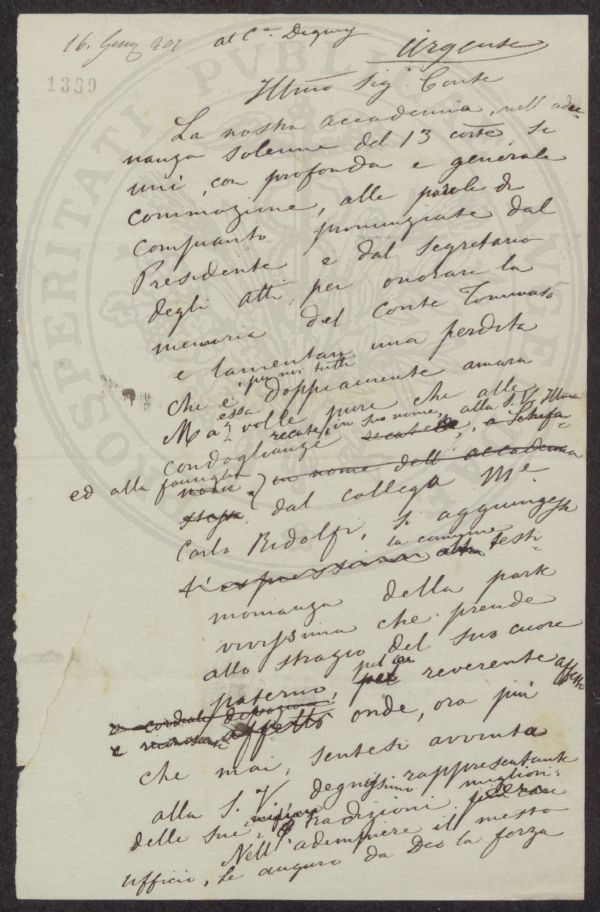 16. Genn 901 al Cte Digny Urgente
1339
PROSPERITATI PUBLICAE AUGENDAE
Illmo Sigr Conte
La nostra accademia, nell'adu-
nanza solenne del 13 corrte, si
unì, con profonda e generale
commozione, alle parole di
compianto pronunziate dal
Presidente e dal Segretario
degli Atti, per onorare la
memoria del Conte Tommaso
e lamentare una perdita
per noi tutti
che è doppiamente amara
essa
Ma volle pure che alle
recate, in suo nome, alla S. V. Illma
condoglianze
ed alla famiglia in nome dell'accademia
stessa, dal collega Me
Carlo Ridolfi, si aggiungesse
la comune
espressione altra testi-
monianza della parte
vivissima che prende
allo strazio del suo cuore
paterno, pel reverente affetto
e cordiale devozione,
affetto onde, ora più
che mai, sentesi avvinta
alla S. V. degnissimo rappresentante
delle sue migliori
tradizioni.
Nell'adempiere il mesto
ufficio, Le auguro da Dio la forza